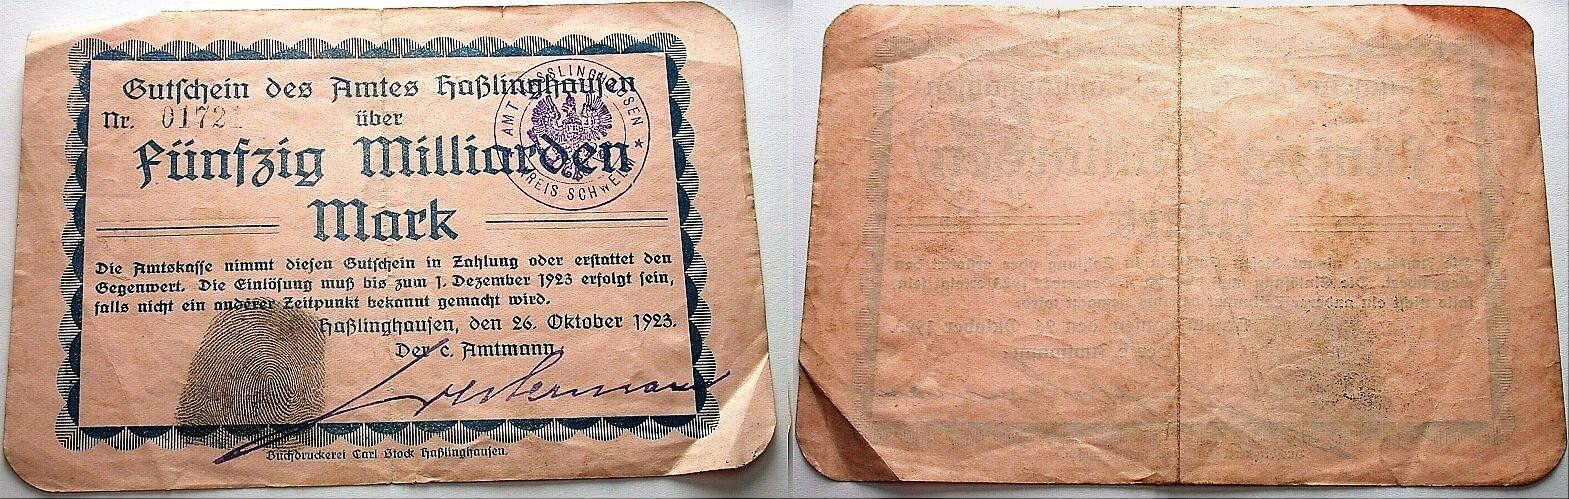 Gutschein des Amtes Haßlinghausen
Nr. 01721
über
Fünfzig Milliarden
Mark
AMT HASSLINGHAUSEN
KREIS SCHWELM
Die Amtskasse nimmt diesen Gutschein in Zahlung oder erstattet den
Gegenwert. Die Einlösung muß bis zum 1. Dezember 1923 erfolgt sein,
falls nicht ein anderer Zeitpunkt bekannt gemacht wird.
Haßlinghausen, den 26. Oktober 1923.
Der c. Amtmann.
Buchdruckerei Carl Stock Haßlinghausen.